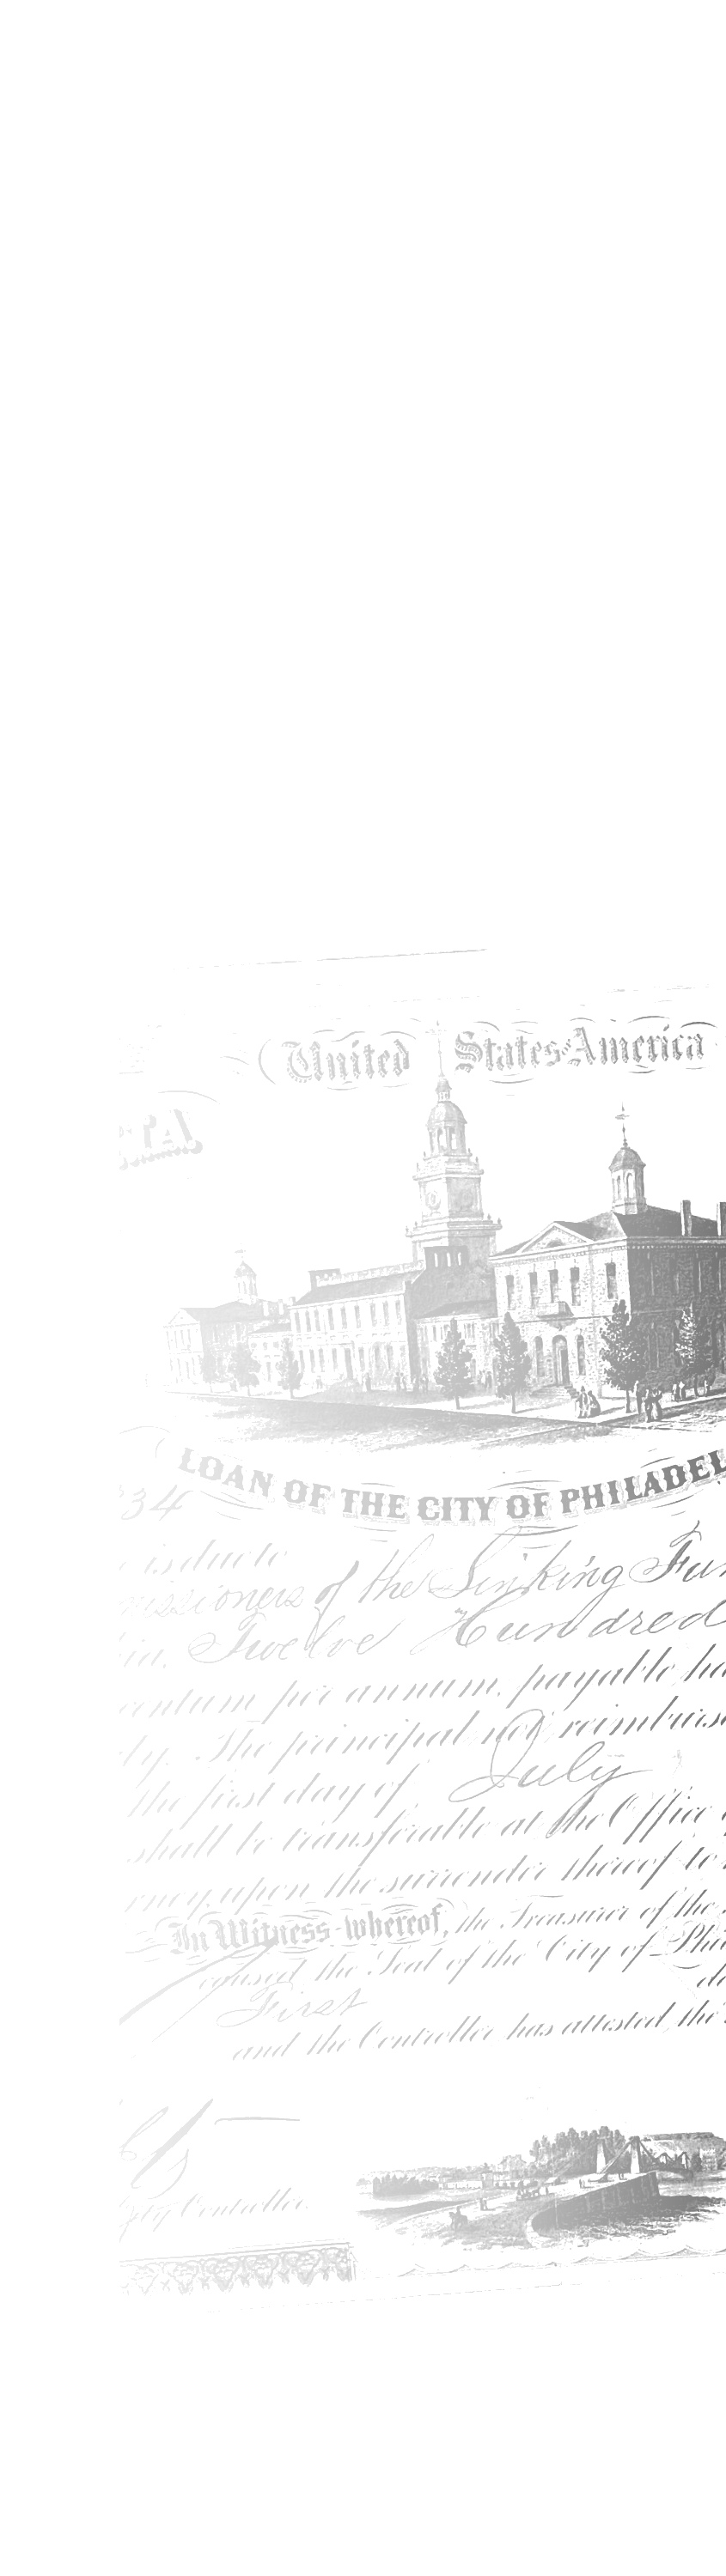 United States America
LOAN OF THE CITY OF PHILADEL
34
is due to
missioners of the Sinking Fun
Twelve Hundred
centum per annum, payable ha
ly. The principal not reimburs
the first day of July
shall be transferable at the Office
rney, upon the surrender thereof to
In Witness whereof, the Treasurer of the
caused the Seal of the City of Phil
First
and the Controller has attested, the
Controller.